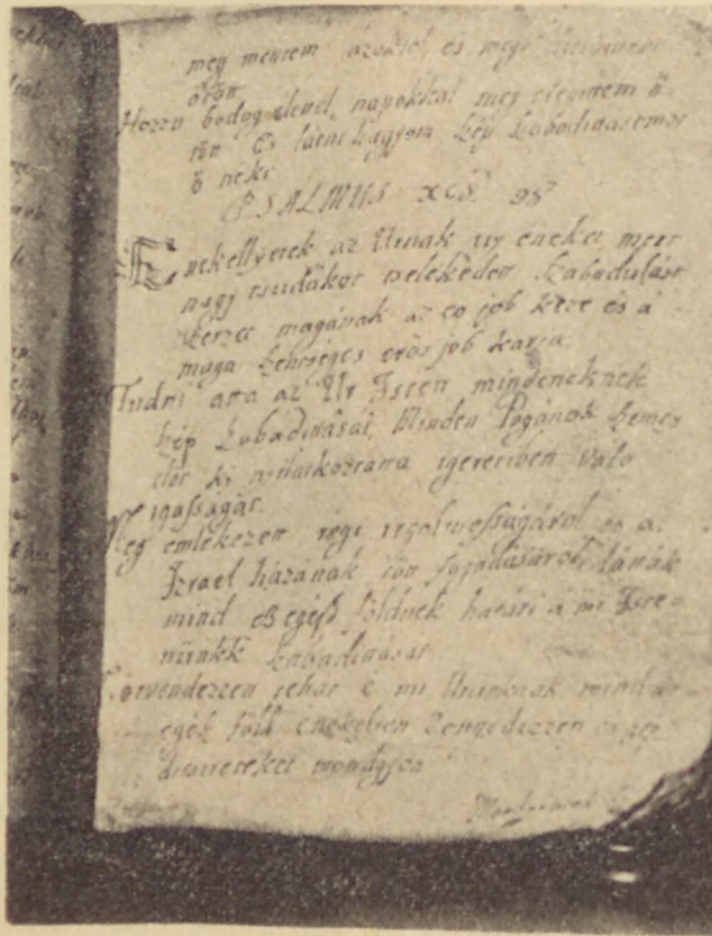 meg mentem azokiel, es meg
őtön
Hozzu bodog elenel, napokkal meg elegitem ő
tön Es latni hagyom Szép Szabaditasomot
ő neki
PSALMUS XCS. 98
Enekellyetek az Urnak uy eneket, mert
nagy csudakot cselekeden Szabadulast
Szerze magának az eo job keze és a
maga Szentséges erös job karja
Tudni atta az Ur Isten mindeneknek
Szép Szabaditását, Minden Pogánok Szemei
elöt ki nilatkoztatta igeretiben valo
igasságát.
Meg emlekezett régi irgolmosságárol es a
Izrael házának tön fogadásárol, lánák
mind az egész földnek határi a mi Iste=
nünkk Szabaditását
Örvendezzen tehát e mi Urunknak mind az
egész föld enekelyen Zengedezzen es
diczireteket mondgyon